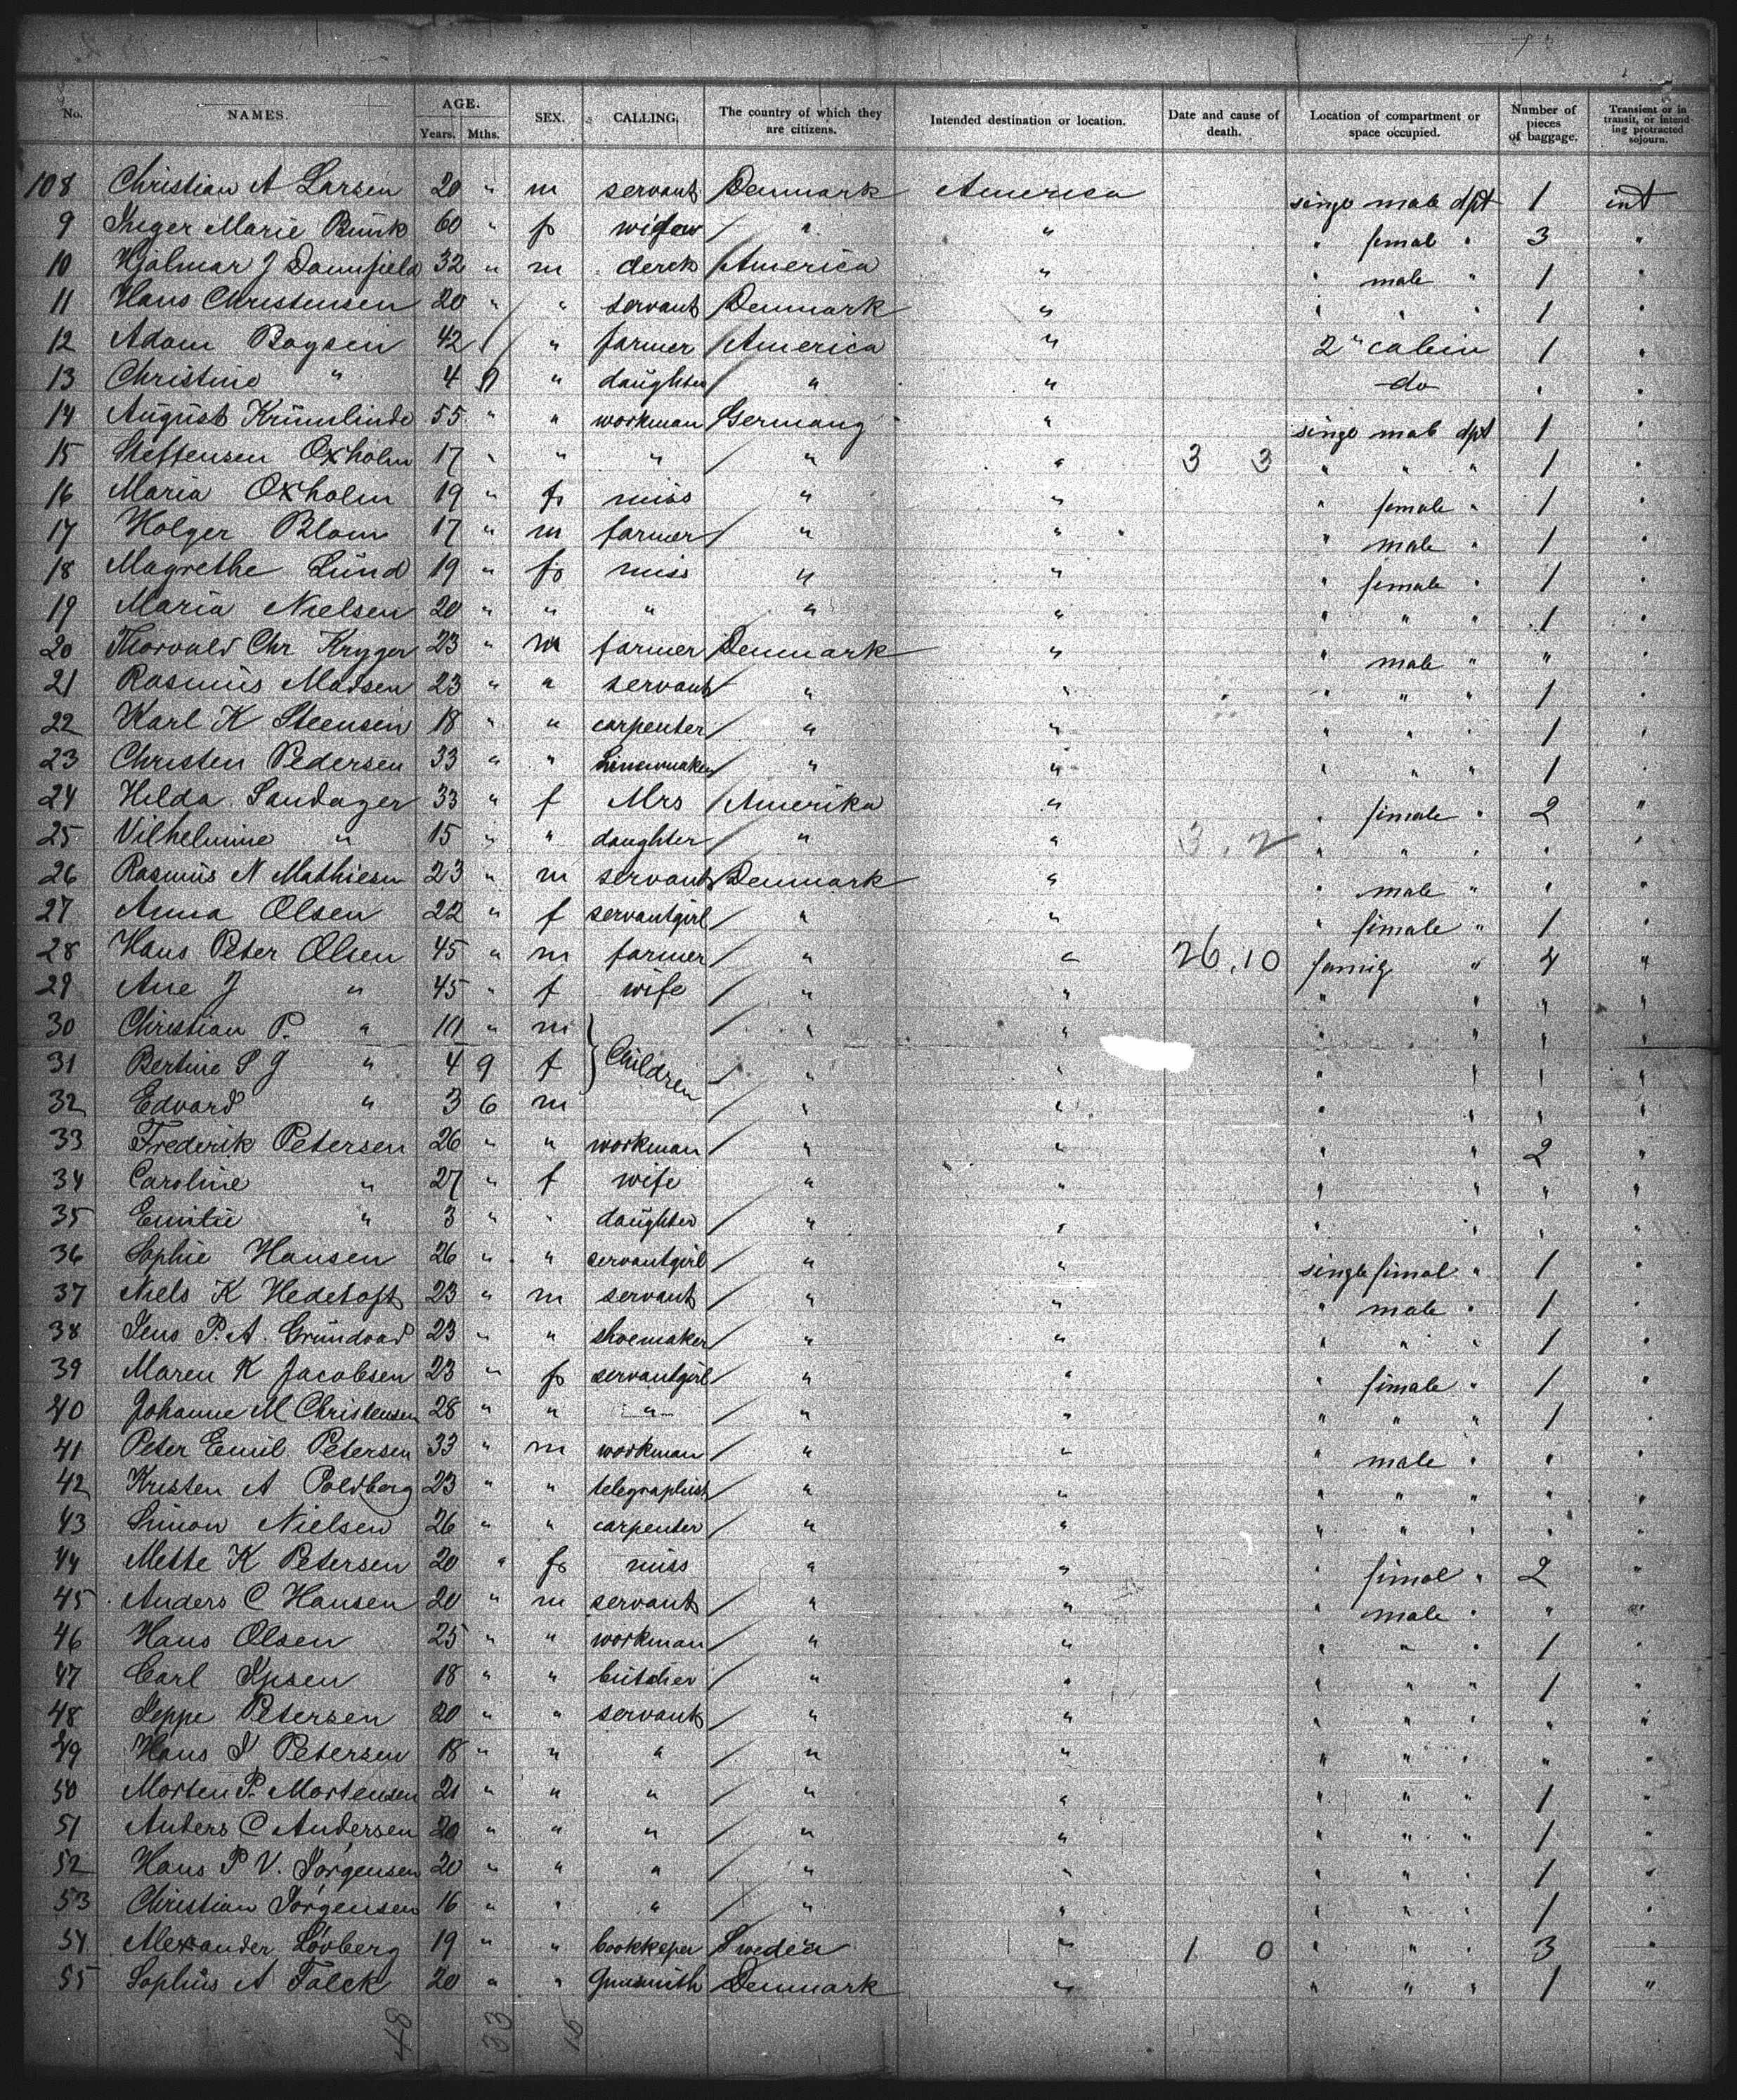 No. NAMES. AGE. Years. Mths. SEX. CALLING. The country of which they are citizens. Intended destination or location. Date and cause of death. Location of compartment or space occupied. Number of pieces of baggage. Transient or in transit, or intending protracted sojourn.
108 Christian A Larsen 20 " m servant Denmark America singe male dpt 1 int
9 Inger Marie Bunk 60 " f widow " " " femal " 3 "
10 Hjalmar J 32 " m clerck America " " male " 1 "
11 Hans Christensen 20 " " servant Denmark " " " " 1 "
12 Adam Boysen 42 " farmer America " 2" cabin 1 "
13 Christine " 4 " daughter " " do " "
14 August Krümlinde 55 " " workman Germany " singe male dpt 1 "
15 Steffensen Oxholm 17 " " " " " 3 3 " " " 1 "
16 Maria Oxholm 19 " f miss " " " female " 1 "
17 Holger Blom 17 " m farmer " " " male " 1 "
18 Magrethe Lünd 19 " f miss " " " female " 1 "
19 Maria Nielsen 20 " " " " " " " " 1 "
20 Thorvald Chr Kryger 23 " m farmer Denmark " " male " " "
21 Rasmüs Madsen 23 " " servant " " " " " 1 "
22 Karl K Steensen 18 " " carpenter " " " " " 1 "
23 Christen Pedersen 33 " " " " " " " 1 "
24 Hilda Sandager 33 " f Mrs Amerika " " female " 2 "
25 Vilhelmine " 15 " " daughter " " 3. 2 " " " " "
26 Rasmüs N Mathiesen 23 " m servant Denmark " " male " " "
27 Anna Olsen 22 " f servantgirl " " " female " 1 "
28 Hans Peter Olsen 45 " m farmer " " 26.10 famig " 4 "
29 Ane J " 45 " f wife " " " " " "
30 Christian P. " 10 " m } Children " " " " " "
31 Bertine S J " 4 9 f " " " " " "
32 Edvard " 3 6 m " " " " " "
33 Frederik Petersen 26 " " workman " " " " 2 "
34 Caroline " 27 " f wife " " " " " "
35 Emilie " 3 " " daughter " " " " " "
36 Sophie Hansen 26 " " servantgirl " " single fimal " 1 "
37 Niels K Hedetoft 23 " m servant " " " male " 1 "
38 Jens P. A. Gründvad 23 " " shoemaker " " " " " 1 "
39 Maren K Jacobsen 23 " f servantgirl " " " fimale " 1 "
40 Johanne M Christensen 28 " " " " " " " " 1 "
41 Peter Emil Petersen 33 " m workman " " " male " " "
42 Kristen A Poldberg 23 " " telegraphist " " " " " " "
43 Simon Nielsen 26 " " carpenter " " " " " " "
44 Mette K Petersen 20 " f miss " " " fimal " 2 "
45 Anders C Hansen 20 " m servant " " " male " " "
46 Hans Olsen 25 " " workman " " " " " 1 "
47 Carl Ipsen 18 " " butcher " " " " " 1 "
48 Jeppe Petersen 20 " " servant " " " " " " "
49 Hans J Petersen 18 " " " " " " " " " "
50 Morten P. Mortensen 21 " " " " " " " " 1 "
51 Anders C Andersen 20 " " " " " " " " 1 "
52 Hans P V. Jørgensen 20 " " " " " " " " 1 "
53 Christian Jørgensen 16 " " " " " " " " 1 "
54 Alexander Lovberg 19 " " bookkeper Sweden " 1 0 " " " 3 "
55 Sophüs A Falck 20 " " Gunsmith Denmark " " " " 1 "
48 33 15